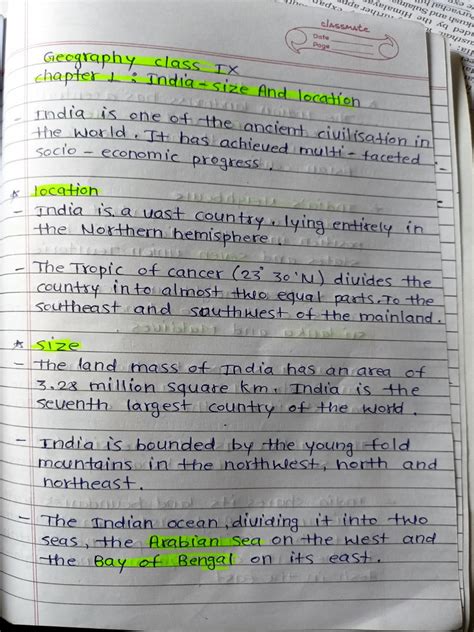 classmate
Date
Page
Geography class IX
chapter 1 : India - size And location
- India is one of the ancient civilisation in
the world. It has achieved multi - faceted
socio - economic progress.
* location
- India is a vast country, lying entirely in
the Northern hemisphere
- The Tropic of cancer (23° 30'N) divides the
country into almost two equal parts. To the
southeast and southwest of the mainland.
* size
- the land mass of India has an area of
3.28 million square km. India is the
seventh largest country of the world.
- India is bounded by the young fold
mountains in the northwest, north and
northeast.
- The Indian ocean, dividing it into two
seas, the Arabian sea on the west and
the Bay of Bengal on its east.